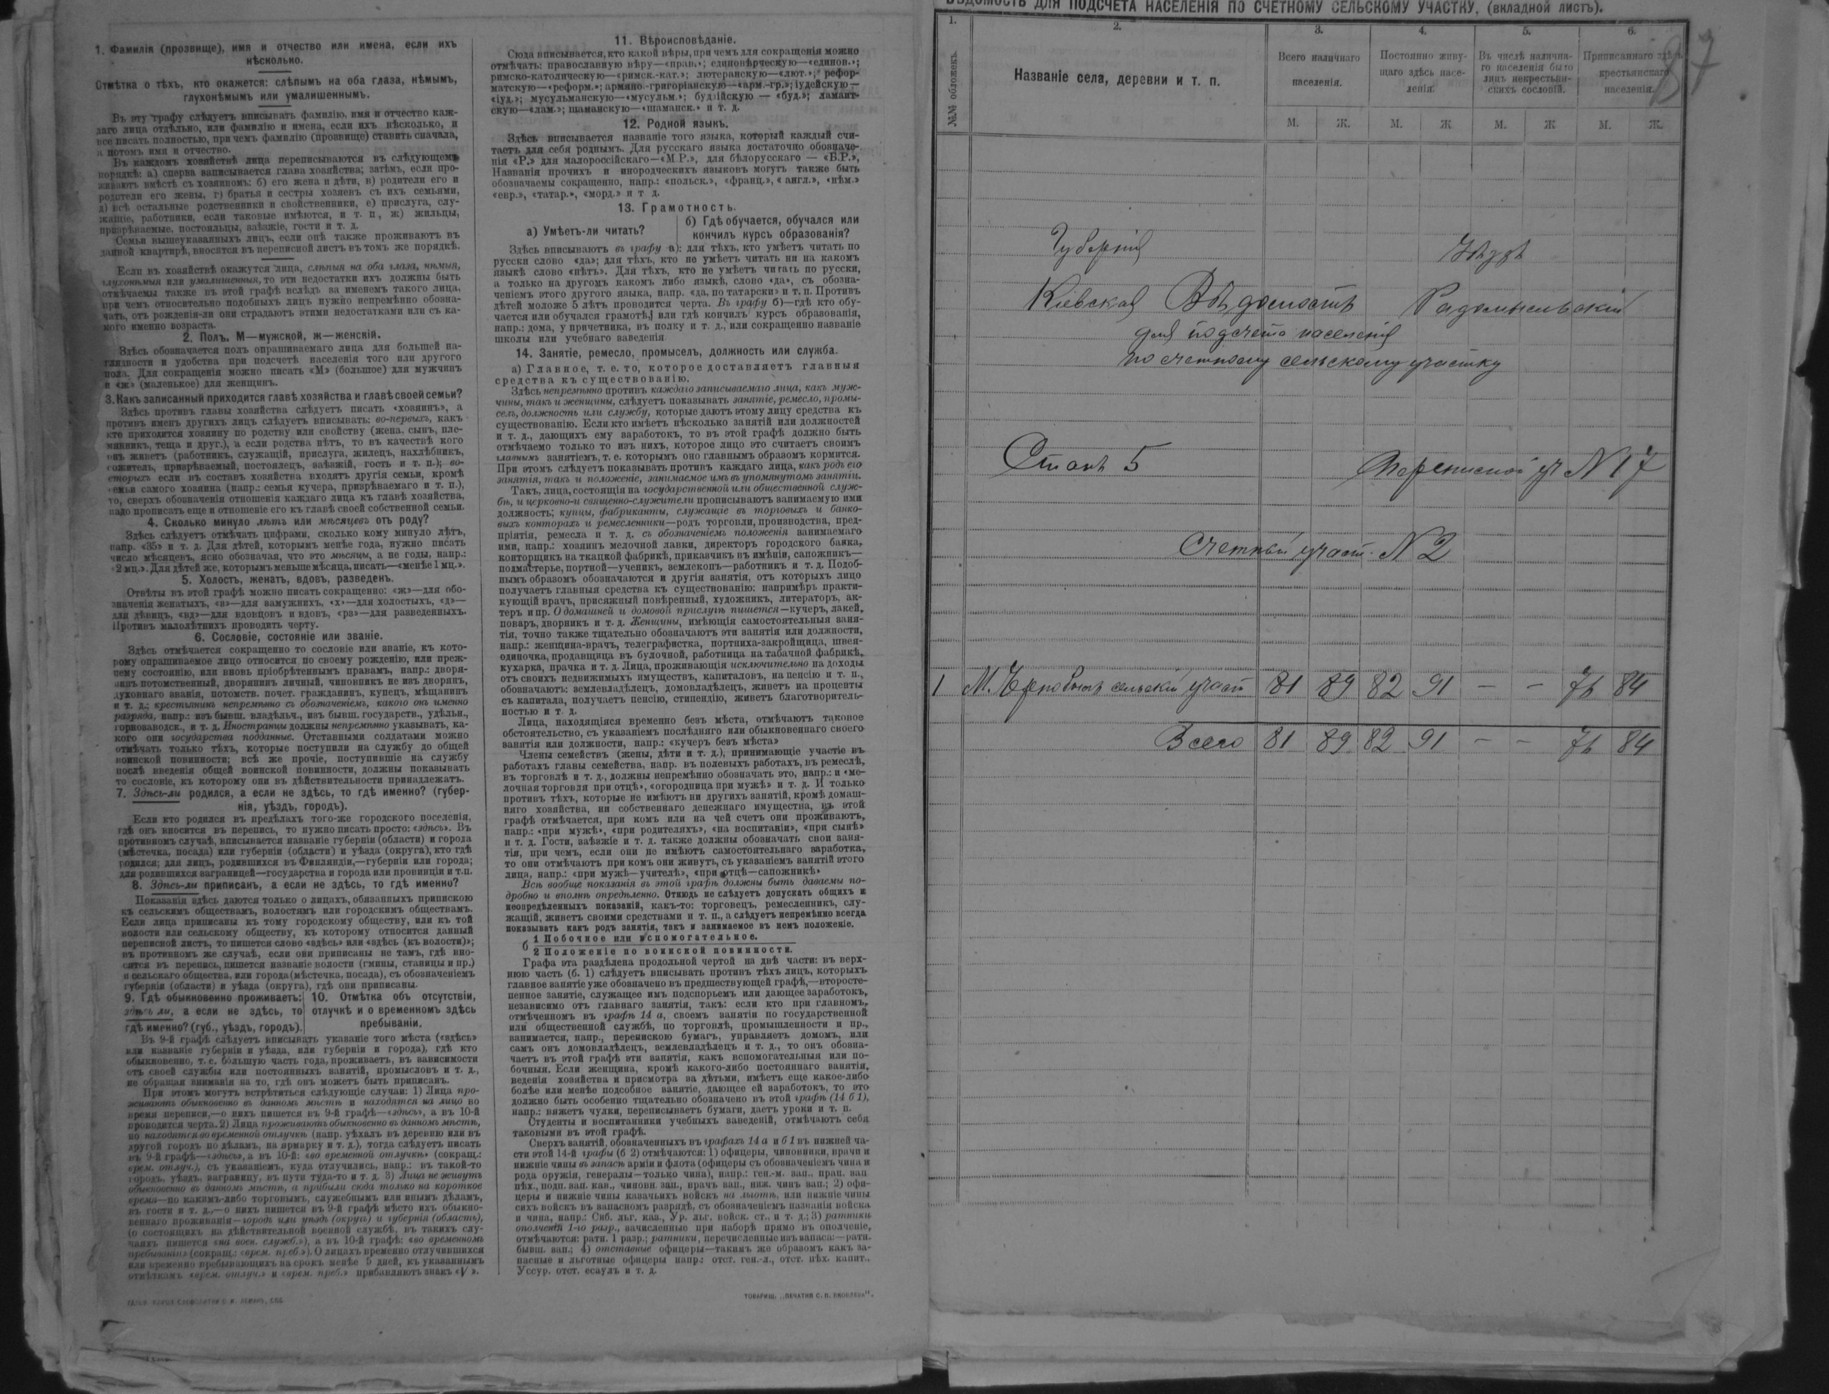 1. Фамилія (прозвище), имя и отчество или имена, если ихъ
нѣсколько.
Отмѣтка о тѣхъ, кто окажется: слѣпымъ на оба глаза, нѣмымъ,
глухонѣмымъ или умалишеннымъ.
Въ эту графу слѣдуетъ вписывать фамилію, имя и отчество каж-
даго лица отдѣльно, или фамилію и имена, если ихъ нѣсколько, и
все писать полностью, при чемъ фамилію (прозвище) ставить сначала,
а потомъ имя и отчество.
Въ каждомъ хозяйствѣ лица переписываются въ слѣдующемъ
порядкѣ: а) сперва записывается глава хозяйства; затѣмъ, если про-
живаютъ вмѣстѣ съ хозяиномъ: б) его жена и дѣти, в) родители его и
родители его жены, г) братья и сестры хозяевъ съ ихъ семьями,
д) всѣ остальные родственники и свойственники, е) прислуга, слу-
жащіе, работники, если таковые имѣются, и т. п., ж) жильцы,
призрѣваемые, постояльцы, заѣзжіе, гости и т. д.
Семьи вышеуказанныхъ лицъ, если онѣ также проживаютъ въ
данной квартирѣ, вносятся въ переписной листъ въ томъ же порядкѣ.
Если въ хозяйствѣ окажутся лица, слѣпыя на оба глаза, нѣмыя,
глухонѣмыя или умалишенныя, то эти недостатки ихъ должны быть
отмѣчаемы также въ этой графѣ вслѣдъ за именемъ такого лица,
при чемъ относительно подобныхъ лицъ нужно непремѣнно обозна-
чать, отъ рожденія-ли они страдаютъ этими недостатками или съ ка-
кого именно возраста.
2. Полъ. М—мужской, ж—женскій.
Здѣсь обозначается полъ опрашиваемаго лица для большей на-
глядности и удобства при подсчетѣ населенія того или другого
пола. Для сокращенія можно писать «М» (большое) для мужчинъ
и «ж» (маленькое) для женщинъ.
3. Какъ записанный приходится главѣ хозяйства и главѣ своей семьи?
Здѣсь противъ главы хозяйства слѣдуетъ писать «хозяинъ», а
противъ именъ другихъ лицъ слѣдуетъ вписывать: во-первыхъ, какъ
кто приходится хозяину по родству или свойству (жена, сынъ, пле-
мянникъ, теща и друг.), а если родства нѣтъ, то въ качествѣ кого
онъ живетъ (работникъ, служащій, прислуга, жилецъ, нахлѣбникъ,
сожитель, призрѣваемый, постоялецъ, заѣзжій, гость и т. п.); во-
вторыхъ если въ составъ хозяйства входятъ другія семьи, кромѣ
семьи самого хозяина (напр.: семьи кучера, призрѣваемаго и т. п.),
то, сверхъ обозначенія отношенія каждаго лица къ главѣ хозяйства,
надо прописать еще и отношеніе его къ главѣ своей собственной семьи.
4. Сколько минуло лѣтъ или мѣсяцевъ отъ роду?
Здѣсь слѣдуетъ отмѣчать цифрами, сколько кому минуло лѣтъ,
напр. «35» и т. д. Для дѣтей, которымъ менѣе года, нужно писать
число мѣсяцевъ, ясно обозначая, что это мѣсяцы, а не годы, напр.:
«2 мц.». Для дѣтей же, которымъ меньше мѣсяца, писать—«менѣе 1 мц.».
5. Холостъ, женатъ, вдовъ, разведенъ.
Отвѣты въ этой графѣ можно писать сокращенно: «ж»—для обо-
значенія женатыхъ, «з»—для замужнихъ, «х»—для холостыхъ, «д»—
для дѣвицъ, «вд»—для вдовцовъ и вдовъ, «рв»—для разведенныхъ.
Противъ малолѣтнихъ проводить черту.
6. Сословіе, состояніе или званіе.
Здѣсь отмѣчается сокращенно то сословіе или званіе, къ кото-
рому опрашиваемое лицо относится по своему рожденію, или преж-
нему состоянію, или вновь пріобрѣтеннымъ правамъ, напр.: дворя-
нинъ потомственный, дворянинъ личный, чиновникъ не изъ дворянъ,
духовнаго званія, потомств. почет. гражданинъ, купецъ, мѣщанинъ
и т. д.; крестьянинъ непремѣнно съ обозначеніемъ, какого онъ именно
разряда, напр.: изъ бывш. владѣльч., изъ бывш. государств., удѣльн.,
горнозаводск., и т. д. Иностранцы должны непремѣнно указывать, ка-
кого они государства подданные. Отставными солдатами можно
отмѣчать только тѣхъ, которые поступили на службу до общей
воинской повинности; всѣ же прочіе, поступившіе на службу
послѣ введенія общей воинской повинности, должны показывать
то сословіе, къ которому они въ дѣйствительности принадлежатъ.
7. Здѣсь-ли родился, а если не здѣсь, то гдѣ именно? (губер-
нія, уѣздъ, городъ).
Если кто родился въ предѣлахъ того-же городского поселенія,
гдѣ онъ вносится въ перепись, то нужно писать просто: «здѣсь». Въ
противномъ случаѣ, вписывается названіе губерніи (области) и города
(мѣстечка, посада) или губерніи (области) и уѣзда (округа), кто гдѣ
родился; для лицъ, родившихся въ Финляндіи,—губерніи или города;
для родившихся заграницей—государства и города или провинціи и т.п.
8. Здѣсь-ли приписанъ, а если не здѣсь, то гдѣ именно?
Показанія здѣсь даются только о лицахъ, обязанныхъ припискою
къ сельскимъ обществамъ, волостямъ или городскимъ обществамъ.
Если лица приписаны къ тому городскому обществу, или къ той
волости или сельскому обществу, къ которому относится данный
переписной листъ, то пишется слово «здѣсь» или «здѣсь (къ волости)»;
въ противномъ же случаѣ, если они приписаны не тамъ, гдѣ вно-
сятся въ перепись, пишется названіе волости (гмины, станицы и пр.)
и сельскаго общества, или города (мѣстечка, посада), съ обозначеніемъ
губерніи (области) и уѣзда (округа), гдѣ они приписаны.
9. Гдѣ обыкновенно проживаетъ:
здѣсь ли, а если не здѣсь, то
гдѣ именно? (губ., уѣздъ, городъ).
10. Отмѣтка объ отсутствіи,
отлучкѣ и о временномъ здѣсь
пребываніи.
Въ 9-й графѣ слѣдуетъ вписывать указаніе того мѣста («здѣсь»
или названіе губерніи и уѣзда, или губерніи и города), гдѣ кто
обыкновенно, т. е. большую часть года, проживаетъ, въ зависимости
отъ своей службы или постоянныхъ занятій, промысловъ и т. д.,
не обращая вниманія на то, гдѣ онъ можетъ быть приписанъ.
При этомъ могутъ встрѣтиться слѣдующіе случаи: 1) Лица про-
живаютъ обыкновенно въ данномъ мѣстѣ и находятся на лицо во
время переписи,—о нихъ пишется въ 9-й графѣ—«здѣсь», а въ 10-й
проводится черта. 2) Лица проживаютъ обыкновенно въ данномъ мѣстѣ,
но находятся во временной отлучкѣ (напр. уѣхалъ въ деревню или въ
другой городъ по дѣламъ, на ярмарку и т. д.), тогда слѣдуетъ писать
въ 9-й графѣ—«здѣсь», а въ 10-й: «во временной отлучкѣ» (сокращ.:
«врем. отлуч.), съ указаніемъ, куда отлучились, напр.: въ такой-то
городъ, уѣздъ, заграницу, въ пути туда-то и т. д. 3) Лица не живутъ
обыкновенно въ данномъ мѣстѣ, а прибыли сюда только на короткое
время—по какимъ-либо торговымъ, служебнымъ или инымъ дѣламъ,
въ гости и т. д.,—о нихъ пишется въ 9-й графѣ мѣсто ихъ обыкно-
веннаго проживанія—городъ или уѣздъ (округъ) и губернія (область),
(о состоящихъ на дѣйствительной военной службѣ, въ такихъ слу-
чаяхъ пишется «на воен. службѣ»), а въ 10-й графѣ: «во временномъ
пребываніи» (сокращ.: «врем. преб.»). О лицахъ временно отлучившихся
или временно пребывающихъ на срокъ менѣе 5 дней, къ указаннымъ
отмѣткамъ «врем. отлуч.» и «врем. преб.» прибавляютъ знакъ «V».
11. Вѣроисповѣданіе.
Сюда вписывается, кто какой вѣры, при чемъ для сокращенія можно
отмѣчать: православную вѣру—«прав.»; единовѣрческую—«единов.»;
римско-католическую—«римск.-кат.»; лютеранскую—«лют.»; рефор-
матскую—«реформ.»; армяно-григоріанскую—«арм.-гр.»; іудейскую—
«іуд.»; мусульманскую—«мусульм.»; буддійскую — «буд.»; ламаит-
скую—«лам.»; шаманскую—«шаманск.» и т. д.
12. Родной языкъ.
Здѣсь вписывается названіе того языка, который каждый счи-
таетъ для себя роднымъ. Для русскаго языка достаточно обозначе-
нія «Р.» для малороссійскаго—«М.Р.», для бѣлорусскаго — «Б.Р.»,
Названія прочихъ и инородческихъ языковъ могутъ также быть
обозначаемы сокращенно, напр.: «польск.», «франц.», «англ.», «нѣм.»
«евр.», «татар.», «морд.» и т. д.
13. Грамотность.
а) Умѣетъ-ли читать?
б) Гдѣ обучается, обучался или
кончилъ курсъ образованія?
Здѣсь вписываютъ въ графу а): для тѣхъ, кто умѣетъ читать по
русски слово «да»; для тѣхъ, кто не умѣетъ читать ни на какомъ
языкѣ слово «нѣтъ». Для тѣхъ, кто не умѣетъ читать по русски,
а только на другомъ какомъ либо языкѣ, слово «да», съ обозна-
ченіемъ этого другого языка, напр. «да, по татарски» и т. п. Противъ
дѣтей моложе 5 лѣтъ проводится черта. Въ графу б)—гдѣ кто обу-
чается или обучался грамотѣ, или гдѣ кончилъ курсъ образованія,
напр.: дома, у причетника, въ полку и т. д., или сокращенно названіе
школы или учебнаго заведенія
14. Занятіе, ремесло, промыселъ, должность или служба.
а) Главное, т. е. то, которое доставляетъ главныя
средства къ существованію.
Здѣсь непремѣнно противъ каждаго записываемаго лица, какъ муж-
чины, такъ и женщины, слѣдуетъ показывать занятіе, ремесло, промы-
селъ, должность или службу, которые даютъ этому лицу средства къ
существованію. Если кто имѣетъ нѣсколько занятій или должностей
и т. д., дающихъ ему заработокъ, то въ этой графѣ должно быть
отмѣчаемо только то изъ нихъ, которое лицо это считаетъ своимъ
главнымъ занятіемъ, т. е. которымъ оно главнымъ образомъ кормится.
При этомъ слѣдуетъ показывать противъ каждаго лица, какъ родъ его
занятія, такъ и положеніе, занимаемое имъ въ упомянутомъ занятіи.
Такъ, лица, состоящія на государственной или общественной служ-
бѣ, и церковно-и священно-служители прописываютъ занимаемую ими
должность; купцы, фабриканты, служащіе въ торговыхъ и банко-
выхъ конторахъ и ремесленники—родъ торговли, производства, пред-
пріятія, ремесла и т. д. съ обозначеніемъ положенія занимаемаго
ими, напр.: хозяинъ мелочной лавки, директоръ городского банка,
конторщикъ на ткацкой фабрикѣ, приказчикъ въ имѣніи, сапожникъ—
подмастерье, портной—ученикъ, землекопъ—работникъ и т. д. Подоб-
нымъ образомъ обозначаются и другія занятія, отъ которыхъ лицо
получаетъ главныя средства къ существованію: напримѣръ практи-
кующій врачъ, присяжный повѣренный, художникъ, литераторъ, ак-
теръ и пр. О домашней и домовой прислугѣ пишется—кучеръ, лакей,
поваръ, дворникъ и т. д. Женщины, имѣющія самостоятельныя заня-
тія, точно также тщательно обозначаютъ эти занятія или должности,
напр.: женщина-врачъ, телеграфистка, портниха-закройщица, швея-
одиночка, продавщица въ булочной, работница на табачной фабрикѣ,
кухарка, прачка и т. д. Лица, проживающія исключительно на доходы
отъ своихъ недвижимыхъ имуществъ, капиталовъ, на пенсію и т. п.,
обозначаютъ: землевладѣлецъ, домовладѣлецъ, живетъ на проценты
съ капитала, получаетъ пенсію, стипендію, живетъ благотворитель-
ностью и т. д.
Лица, находящіяся временно безъ мѣста, отмѣчаютъ таковое
обстоятельство, съ указаніемъ послѣдняго или обыкновеннаго своего
занятія или должности, напр.: «кучеръ безъ мѣста»
Члены семействъ (жены, дѣти и т. д.), принимающіе участіе въ
работахъ главы семейства, напр. въ полевыхъ работахъ, въ ремеслѣ,
въ торговлѣ и т. д., должны непремѣнно обозначать это, напр.: и «ме-
лочная торговля при отцѣ», «огородница при мужѣ» и т. д. И только
противъ тѣхъ, которые не имѣютъ ни другихъ занятій, кромѣ домаш-
няго хозяйства, ни собственнаго денежнаго имущества, въ этой
графѣ отмѣчается, при комъ или на чей счетъ они проживаютъ,
напр.: «при мужѣ», «при родителяхъ», «на воспитаніи», «при сынѣ»
и т. д. Гости, заѣзжіе и т. д. также должны обозначать свои заня-
тія, при чемъ, если они не имѣютъ самостоятельнаго заработка,
то они отмѣчаютъ при комъ они живутъ, съ указаніемъ занятій этого
лица, напр.: «при мужѣ—учителѣ», «при отцѣ—сапожникѣ»
Всѣ вообще показанія въ этой графѣ должны быть даваемы по-
дробно и вполнѣ опредѣленно. Отнюдь не слѣдуетъ допускать общихъ и
неопредѣленныхъ показаній, какъ-то: торговецъ, ремесленникъ, слу-
жащій, живетъ своими средствами и т. п., а слѣдуетъ непремѣнно всегда
показывать какъ родъ занятія, такъ и занимаемое въ немъ положеніе.
б 1 Побочное или вспомогательное.
2 Положеніе по воинской повинности.
Графа эта раздѣлена продольной чертой на двѣ части: въ верх-
нюю часть (б. 1) слѣдуетъ вписывать противъ тѣхъ лицъ, которыхъ
главное занятіе уже обозначено въ предшествующей графѣ,—второсте-
пенное занятіе, служащее имъ подспорьемъ или дающее заработокъ,
независимо отъ главнаго занятія, такъ: если кто при главномъ,
отмѣченномъ въ графѣ 14 а, своемъ занятіи по государственной
или общественной службѣ, по торговлѣ, промышленности и пр.,
занимается, напр., перепискою бумагъ, управляетъ домомъ, или
самъ онъ домовладѣлецъ, землевладѣлецъ и т. д., то онъ обозна-
чаетъ въ этой графѣ эти занятія, какъ вспомогательныя или по-
бочныя. Если женщина, кромѣ какого-либо постояннаго занятія,
веденія хозяйства и присмотра за дѣтьми, имѣетъ еще какое-либо
болѣе или менѣе подсобное занятіе, дающее ей заработокъ, то это
должно быть особенно тщательно обозначено въ этой графѣ (14 б 1),
напр.: вяжетъ чулки, переписываетъ бумаги, даетъ уроки и т. п.
Студенты и воспитанники учебныхъ заведеній, отмѣчаютъ себя
таковыми въ этой графѣ.
Сверхъ занятій, обозначенныхъ въ графахъ 14 а и б 1 въ нижней ча-
сти этой 14-й графы (б 2) отмѣчаются: 1) офицеры, чиновники, врачи и
нижніе чины въ запасѣ арміи и флота (офицеры съ обозначеніемъ чина и
рода оружія, генералы—только чина), напр.: ген.-м. зап., прап. зап.
пѣх., подп. зап. кав., чиновн. зап., врачъ зап., ниж. чинъ зап.; 2) офи-
церы и нижніе чины казачьихъ войскъ на льготѣ, или нижніе чины
сихъ войскъ въ запасномъ разрядѣ, съ обозначеніемъ названія войска
и чина, напр.: Сиб. льг. каз., Ур. льг. войск. ст., и т. д.; 3) ратники
ополченія 1-го разр., зачисленные при наборѣ прямо въ ополченіе,
отмѣчаются: ратн. 1 разр.; ратники, перечисленные изъ запаса:—ратн.
бывш. зап.; 4) отставные офицеры—такимъ же образомъ какъ за-
пасные и льготные офицеры напр.: отст. ген.-л., отст. пѣх. капит.,
Уссур. отст. есаулъ и т. д.
ТОВАРИЩ. „ПЕЧАТНЯ С. П. ЯКОВЛЕВА".
ВѢДОМОСТЬ ДЛЯ ПОДСЧЕТА НАСЕЛЕНІЯ ПО СЧЕТНОМУ СЕЛЬСКОМУ УЧАСТКУ. (вкладной листъ).
1. 2. 3. 4. 5. 6.
№№ обложекъ.
Названіе села, деревни и т. п.
Всего наличнаго
населенія.
Постоянно живу-
щаго здѣсь насе-
ленія.
Въ числѣ налична-
го населенія было
лицъ некрестьян-
скихъ сословій.
Приписаннаго здѣсь
крестьянскаго
населенія.
М. Ж. М. Ж. М. Ж М. Ж.
Губернія Уѣздъ
Кіевская Вѣдомость Радомысльскій
для подсчета населенія
по счетному сельскому участку
Станъ 5 Переписной уч N 17
Счетный участ. N 2
81 89 82 91 — — 76 84
Всего 81 89 82 91 — — 76 84